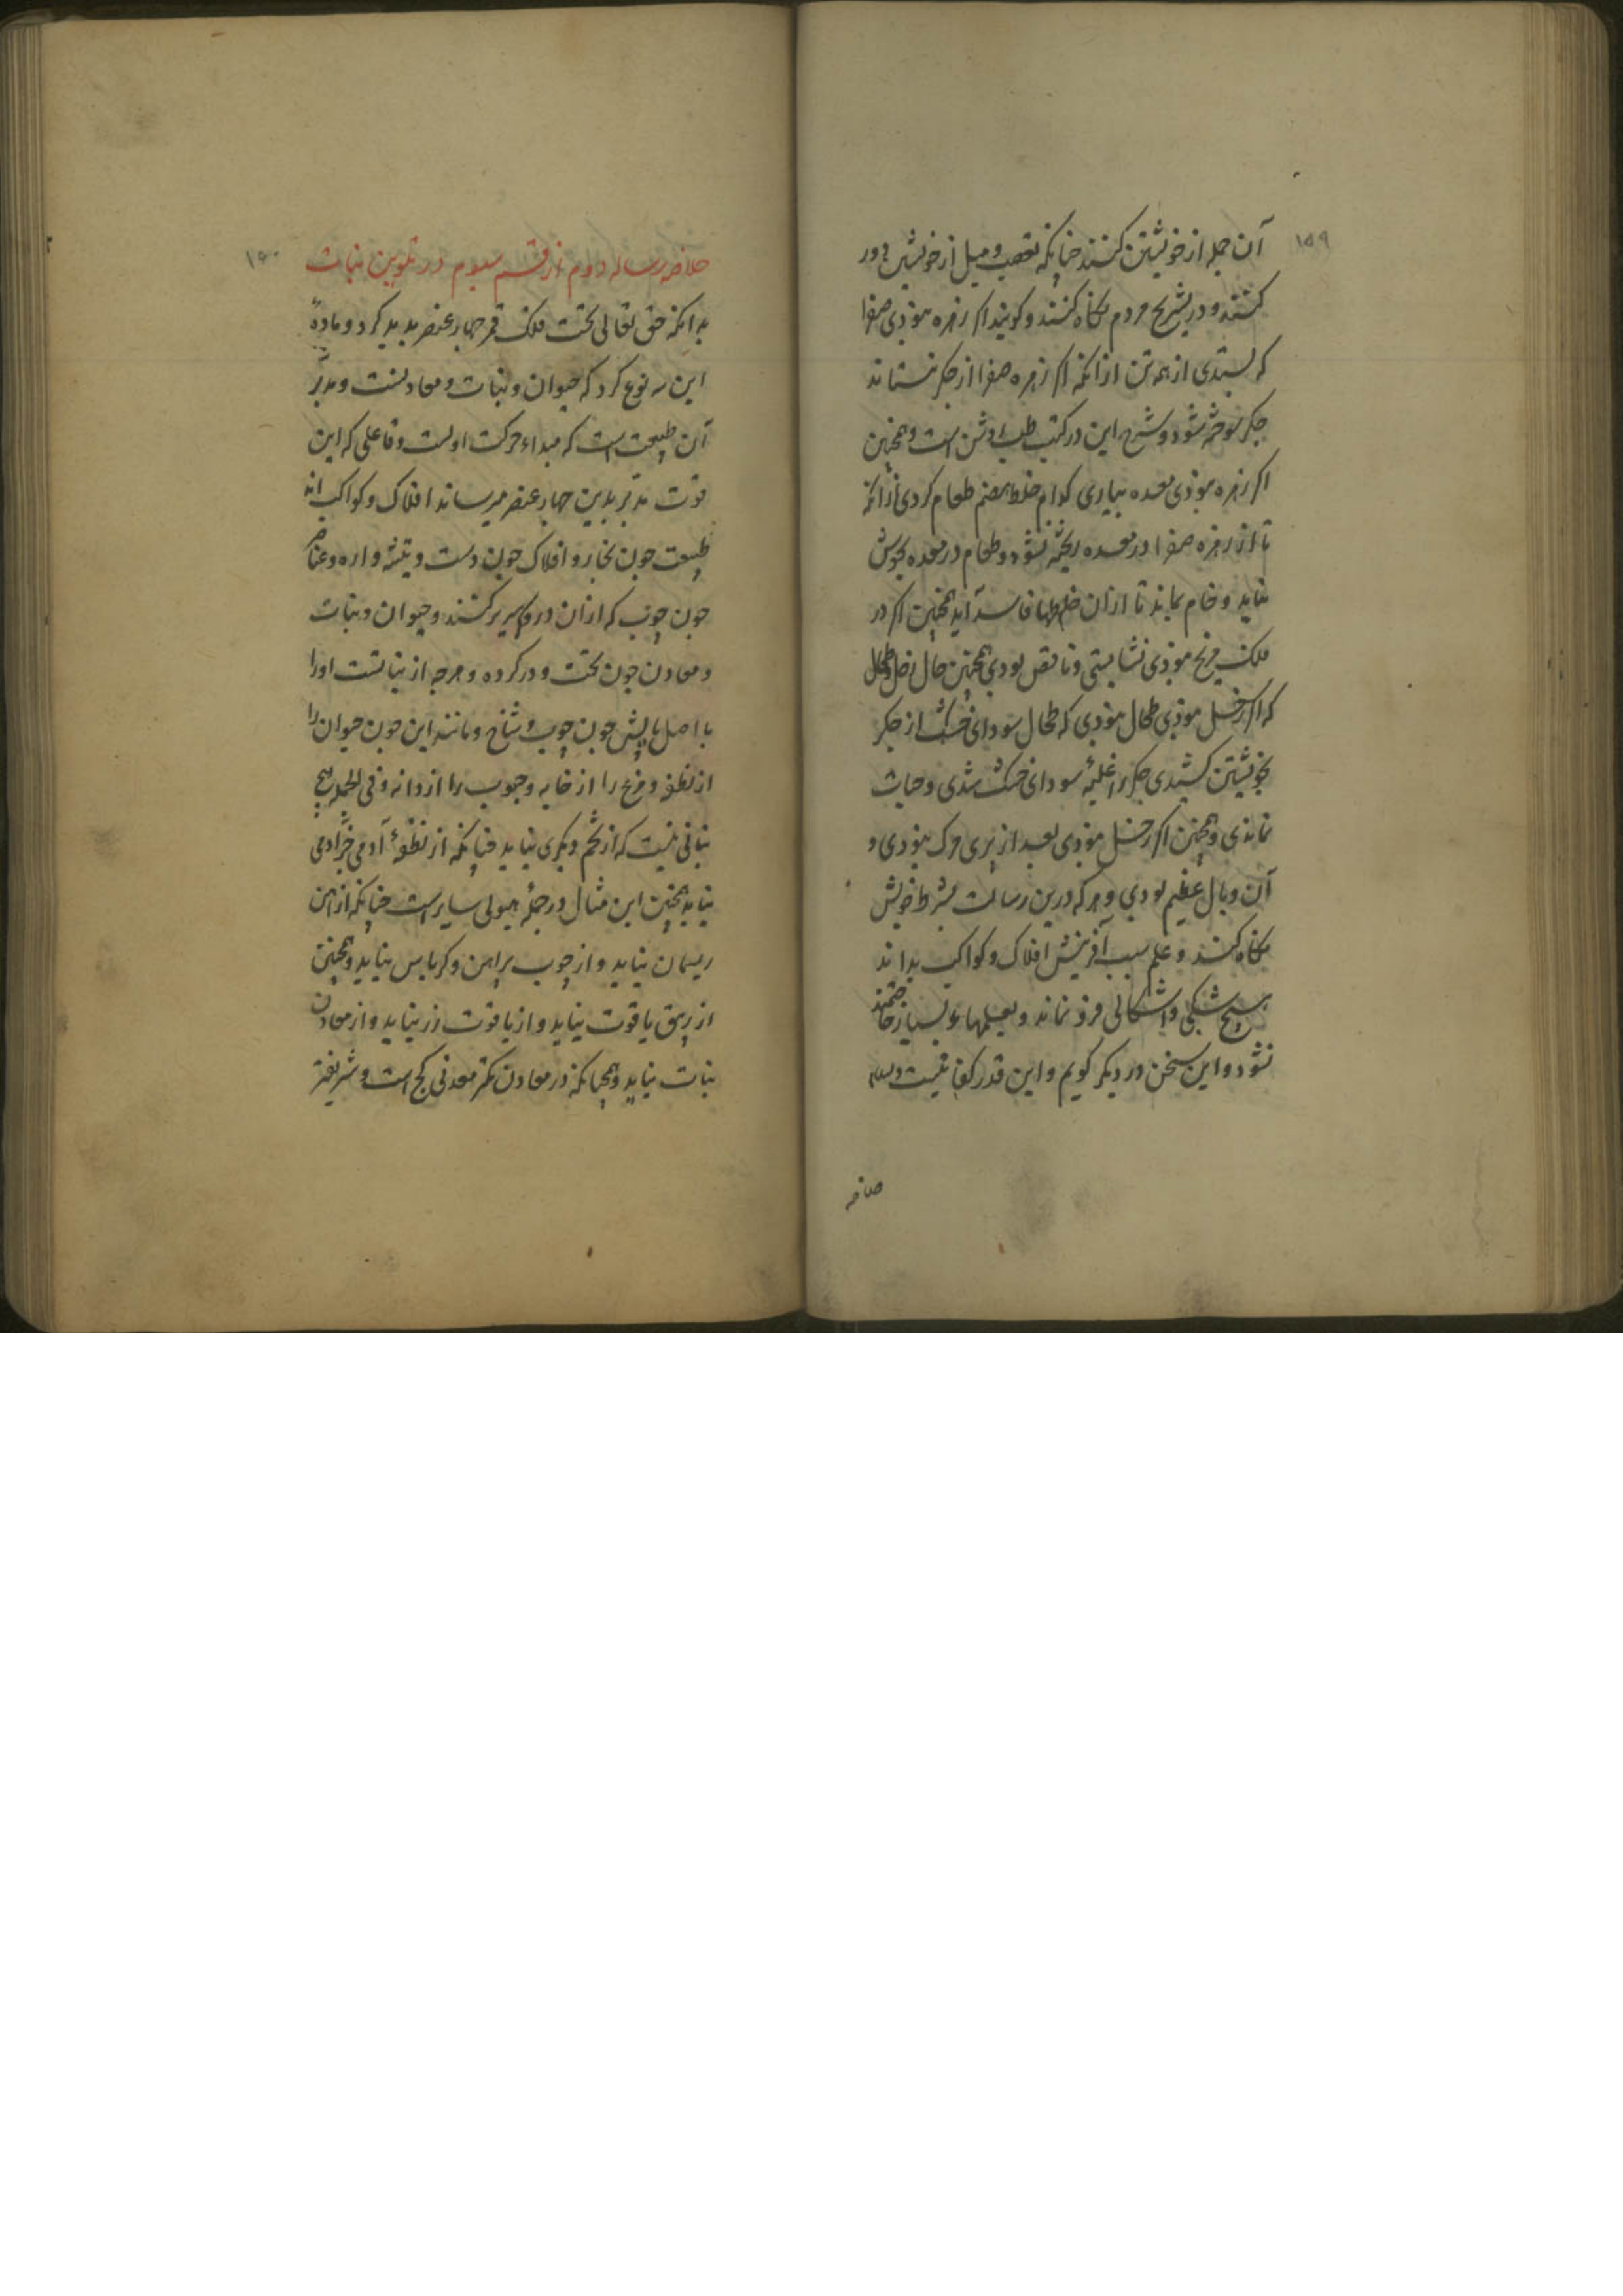 ۱۵۹
آن جمله از خویشتن کنند چنانکه تعصب و میل از خویشتن دور
کنند و در تشریح مردم نکاه کنند و کویند اکر زهره نبوذی صفرا
که ستدی از همه تن از انکه اکر زهره صفرا از جکر نستاند
جکر سوخته شود و شرح این در کتب طب روشن است و همچنین
اکر زهره نبوذی بمعده بیاری کدام خلط هضم طعام کردی از انکه
تا از زهره صفرا در معده ریخته نشود و طعام در معده بجوش
نیاید و خام بماند تا از ان خلطها فاسد آید همچنین اکر در
فلک مریخ نبوذی نشایستی و ناقص بودی همچنین حال زحل و طحال
که اکر زحل نبوذی طحال نبوذی که طحال سوداء خشک از جکر
بخویشتن کشیدی جکر را غلبهٔ سوداء خشک شدی و حیات
نماندی و همچنین اکر زحل نبوذی بعد از پری مرک نبوذی و
آن وبال عظیم بودی و هر که درین رسالت بشرط خویش
نکاه کند و علم سبب آفرینش افلاک و کواکب بداند
بهیچ شکی و اشکالی فرو نماند و بعلمهاء بسیار
نشود و این سخن در دیکر کویم و این قدر کفایتست والسلم
خلاصه
۱۶۰
خلاصه رساله دوم از قسم سیوم در تکوین نبات
بدانکه حق تعالی تحت فلک قمر چهار عنصر بدید کرد و مادهٔ
این سه نوع کرد که حیوان و نبات و معادنست و مدبّر
آن طبیعت است که مبداء حرکت اولست و فاعلی که این
قوت مدبّر بدین چهار عنصر میرساند افلاک و کواکب اند
طبیعت جون نجار و افلاک جون دست و تیشه و اره و عناصر
جون چوب که ازان در و سریر کنند و حیوان و نبات
و معادن جون تخت و در کرده و هرچه از نباتست او را
با اصل پایش جون چوب و شاخ و مانند این جون حیوان را
از نطفه و مرغ را از خایه و حبوب را از دانه و فی الجمله هیچ
نباتی نیست که از تخم دیکری نیاید چنانکه از نطفهٔ آدمی جز آدمی
نیاید همچنین این مثال در جملهٔ هیولی سایر است چنانکه از آهن
ریسمان نیاید و از چوب پراهن و کرباس نیاید و همچنین
از زیبق یاقوت نیاید و از یاقوت زر نیاید و از معادن
نبات نیاید و همچنانکه در معادن کمتر معدنی کچ است و شریفتر